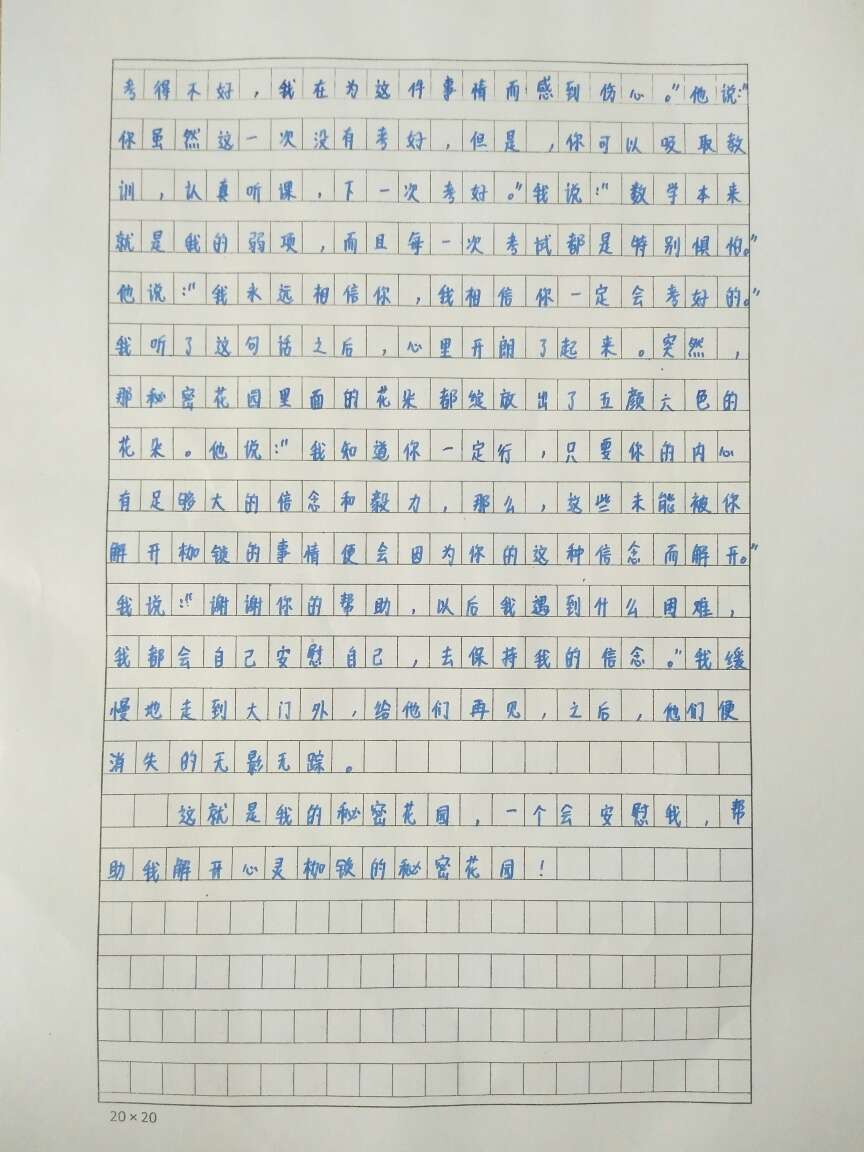 考得不好，我在为这件事情而感到伤心。”他说：“
你虽然这一次没有考好，但是，你可以吸取教
训，认真听课，下一次考好。”我说：“数学本来
就是我的弱项，而且每一次考试都是特别惧怕。”
他说：“我永远相信你，我相信你一定会考好的。”
我听了这句话之后，心里开朗了起来。突然，
那秘密花园里面的花朵都绽放出了五颜六色的
花朵。他说：“我知道你一定行，只要你的内心
有足够大的信念和毅力，那么，这些未能被你
解开枷锁的事情便会因为你的这种信念而解开。”
我说：“谢谢你的帮助，以后我遇到什么困难，
我都会自己安慰自己，去保持我的信念。”我缓
慢地走到大门外，给他们再见，之后，他们便
消失的无影无踪。
这就是我的秘密花园，一个会安慰我，帮
助我解开心灵枷锁的秘密花园！
20×20